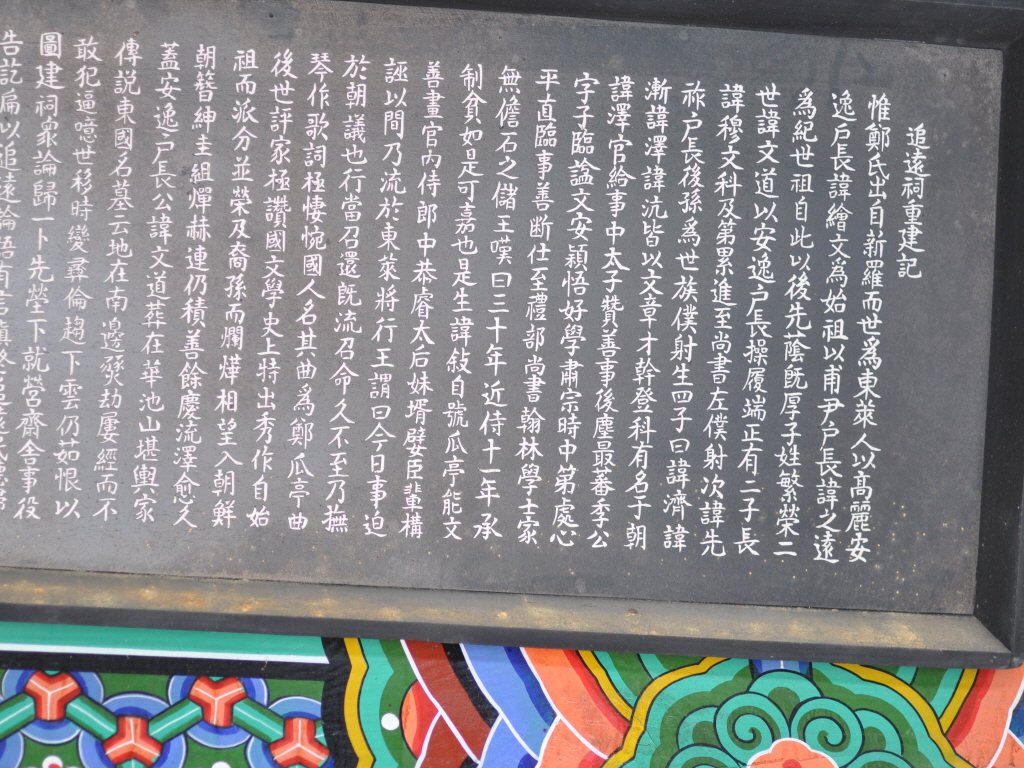 追遠祠重建記
惟鄭氏出自新羅而世爲東萊人以高麗安
逸戶長諱繪文為始祖以甫尹戶長諱之遠
爲紀世祖自此以後先蔭旣厚子姓繁榮二
世諱文道以安逸戶長操履端正有二子長
諱穆文科及第累進至尚書左僕射次諱先
祚戶長後孫為世族僕射生四子曰諱濟諱
漸諱澤諱沆皆以文章才幹登科有名于朝
諱澤官給事中太子贊善事後塵最蕃李公
字子臨諡文安穎悟好學肅宗時中第處心
平直臨事善断仕至禮部尚書翰林學士家
無儋石之儲王嘆曰三十年近侍十一年承
制貧如是可嘉也是生諱敍自號瓜亭能文
善畫官內侍郎中恭睿太后妹壻嬖臣輩構
誣以間乃流於東萊將行王謂曰今日事迫
於朝議也行當召還旣流召命久不至乃撫
琴作歌詞極悽惋國人名其曲爲鄭瓜亭曲
後世評家極讚國文學史上特出秀作自始
祖而派分並榮及裔孫而爛燁相望入朝鮮
朝簪紳圭組燀赫連仍積善餘慶流澤愈久
蓋安逸戶長公諱文道葬在華池山堪輿家
傳説東國名墓云地在南邊燹劫屢經而不
敢犯逼噫世移時變彛倫趨下雲仍茹恨以
圖建祠衆論歸一卜先塋下就營齋舍事役
告訖扁以追遠論語有言愼終追遠民德歸